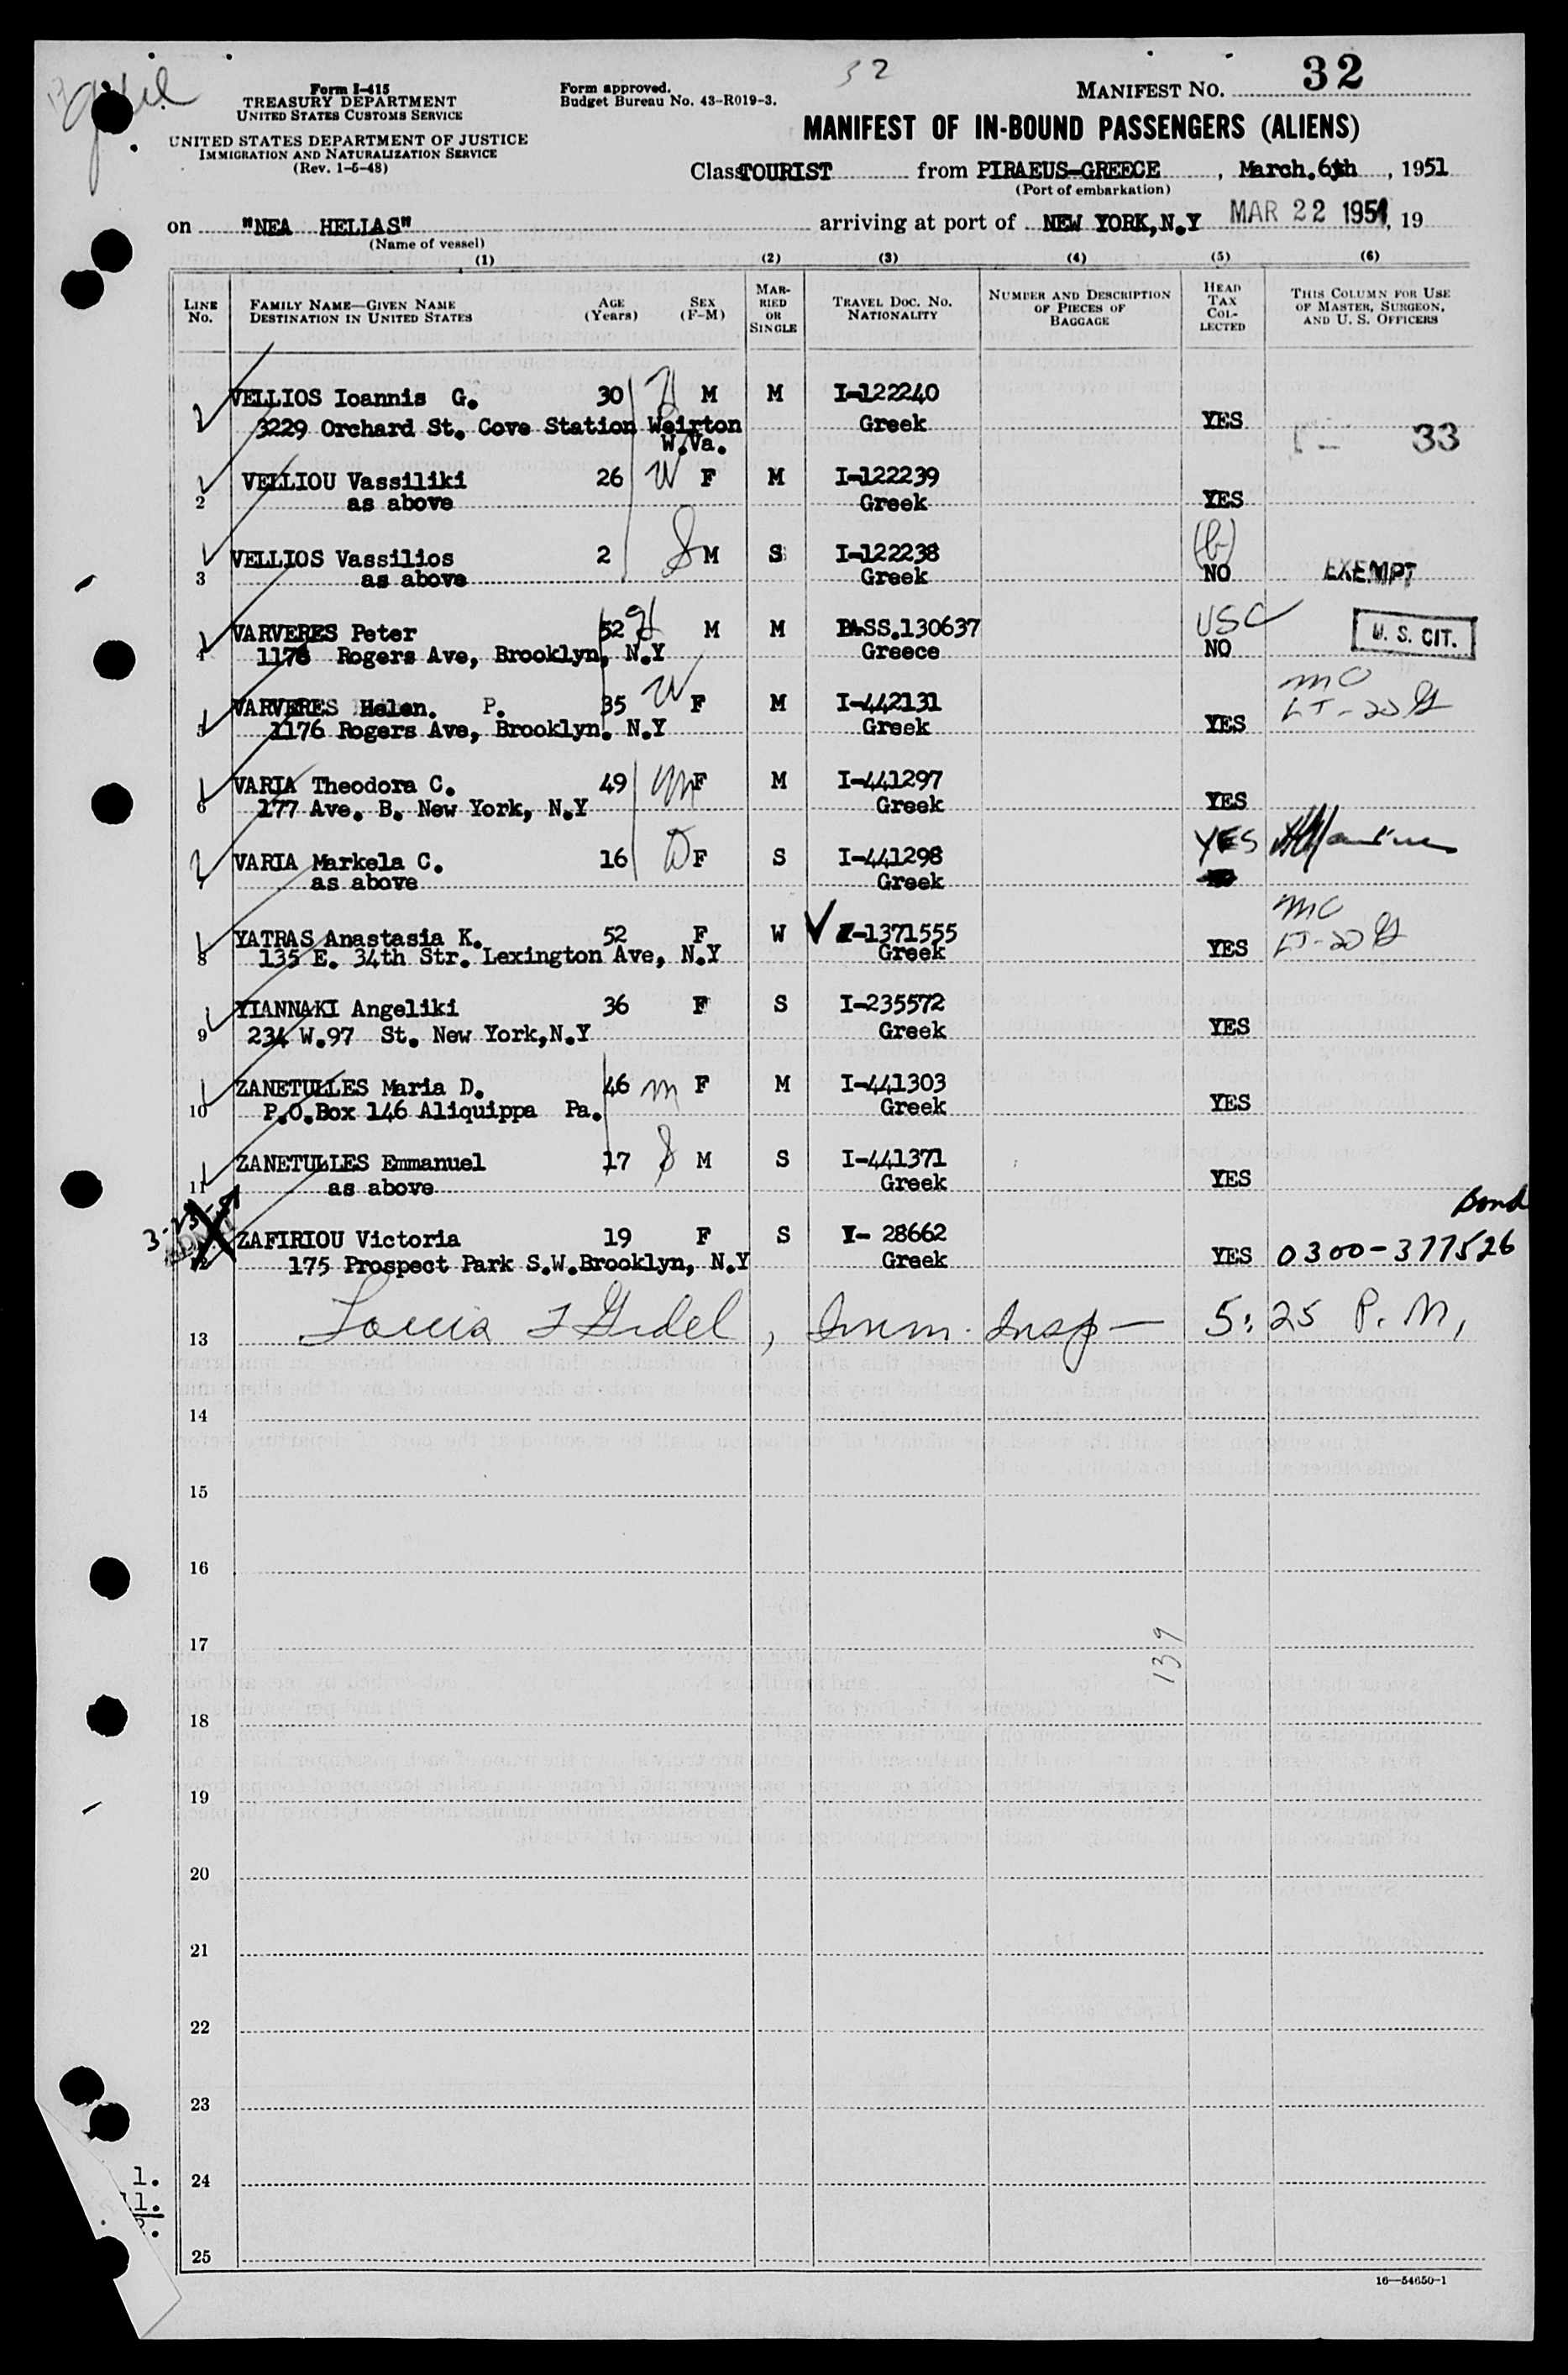 32
Form I-415
TREASURY DEPARTMENT
UNITED STATES CUSTOMS SERVICE
UNITED STATES DEPARTMENT OF JUSTICE
IMMIGRATION AND NATURALIZATION SERVICE
(Rev. 1-5-48)
Form approved.
Budget Bureau No. 43-R019-3.
MANIFEST NO. 32
MANIFEST OF IN-BOUND PASSENGERS (ALIENS)
Class TOURIST from PIRAEUS-GREECE, March. 6th, 1951
(Port of embarkation)
on "NEA HELLAS" arriving at port of NEW YORK, N.Y MAR 22 1951, 19
(Name of vessel)
(1) (2) (3) (4) (5) (6)
LINE No. FAMILY NAME—GIVEN NAME DESTINATION IN UNITED STATES AGE (Years) SEX (F-M) MARRIED OR SINGLE TRAVEL DOC. NO. NATIONALITY NUMBER AND DESCRIPTION OF PIECES OF BAGGAGE HEAD TAX COLLECTED THIS COLUMN FOR USE OF MASTER, SURGEON, AND U. S. OFFICERS
VELLIOS Ioannis G. 30 M M I-122240
3229 Orchard St. Cove Station Weirton Greek YES 33
W.Va.
VELLIOU Vassiliki 26 W F M I-122239
2 as above Greek YES
VELLIOS Vassilios 2 M S I-122238 (b)
3 as above Greek NO EXEMPT
VARVERES Peter 52 M M PASS.130637 USC U. S. CIT.
4 1176 Rogers Ave, Brooklyn, N.Y Greece NO
VARVERES Helen. P. 35 W F M I-442131 MC
5 1176 Rogers Ave, Brooklyn. N.Y Greek YES
VARIA Theodora C. 49 m F M I-441297
6 177 Ave. B. New York, N.Y Greek YES
VARIA Markela C. 16 D F S I-441298 YES
as above Greek
YATRAS Anastasia K. 52 F W I-1371555 MC
8 135 E. 34th Str. Lexington Ave, N.Y Greek YES
YIANNAKI Angeliki 36 F S I-235572
9 234 W.97 St. New York,N.Y Greek YES
ZANETULLES Maria D. 46 m F M I-441303
10 P.O.Box 146 Aliquippa Pa. Greek YES
ZANETULLES Emmanuel 17 M S I-441371
11 as above Greek YES
Bond
ZAFIRIOU Victoria 19 F S V- 28662
12 175 Prospect Park S.W.Brooklyn, N.Y Greek YES 0300-377526
13 Imm. Insp — 5:25 P.M.
14
15
16
17
139
18
19
20
21
22
23
24
25
1.
11.
16—54650-1